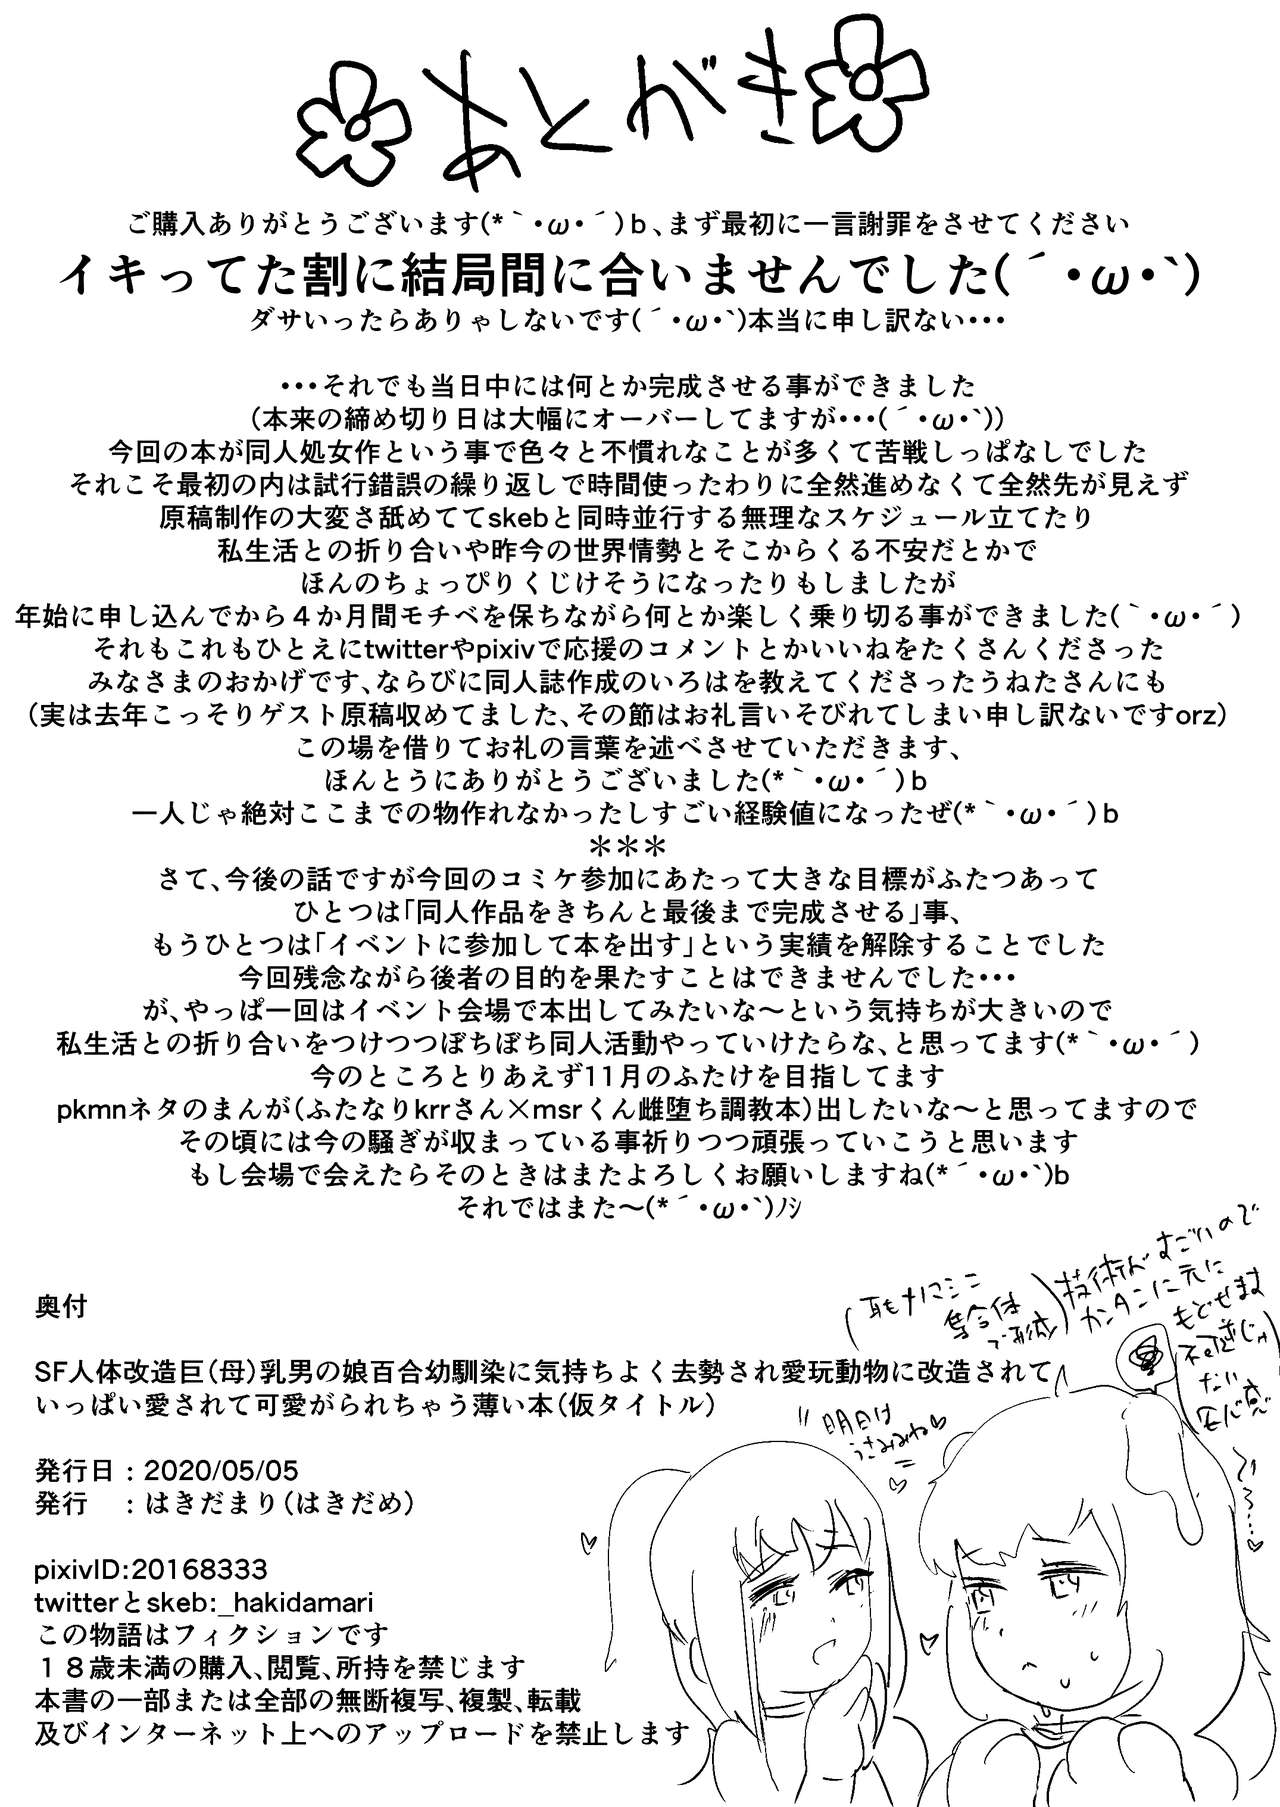 あとがき
ご購入ありがとうございます(*｀・ω・´)b、まず最初に一言謝罪をさせてください
イキってた割に結局間に合いませんでした(´・ω・`)
ダサいったらありゃしないです(´・ω・`)本当に申し訳ない・・・
・・・それでも当日中には何とか完成させる事ができました
(本来の締め切り日は大幅にオーバーしてますが・・・(´・ω・`))
今回の本が同人処女作という事で色々と不慣れなことが多くて苦戦しっぱなしでした
それこそ最初の内は試行錯誤の繰り返しで時間使ったわりに全然進めなくて全然先が見えず
原稿制作の大変さ舐めててskebと同時並行する無理なスケジュール立てたり
私生活との折り合いや昨今の世界情勢とそこからくる不安だとかで
ほんのちょっぴりくじけそうになったりもしましたが
年始に申し込んでから４か月間モチベを保ちながら何とか楽しく乗り切る事ができました(｀・ω・´)
それもこれもひとえにtwitterやpixivで応援のコメントとかいいねをたくさんくださった
みなさまのおかげです、ならびに同人誌作成のいろはを教えてくださったうねたさんにも
(実は去年こっそりゲスト原稿収めてました、その節はお礼言いそびれてしまい申し訳ないですorz)
この場を借りてお礼の言葉を述べさせていただきます、
ほんとうにありがとうございました(*｀・ω・´)b
一人じゃ絶対ここまでの物作れなかったしすごい経験値になったぜ(*｀・ω・´)b
＊＊＊
さて、今後の話ですが今回のコミケ参加にあたって大きな目標がふたつあって
ひとつは「同人作品をきちんと最後まで完成させる」事、
もうひとつは「イベントに参加して本を出す」という実績を解除することでした
今回残念ながら後者の目的を果たすことはできませんでした・・・
が、やっぱ一回はイベント会場で本出してみたいな～という気持ちが大きいので
私生活との折り合いをつけつつぼちぼち同人活動やっていけたらな、と思ってます(*｀・ω・´)
今のところとりあえず11月のふたけを目指してます
pkmnネタのまんが(ふたなりkrrさん×msrくん雌堕ち調教本)出したいな～と思ってますので
その頃には今の騒ぎが収まっている事祈りつつ頑張っていこうと思います
もし会場で会えたらそのときはまたよろしくお願いしますね(*´・ω・`)b
それではまた～(*´・ω・`)ﾉｼ
技術がすごいので
カンタンに元に
もどせます
(耳もナノマシン
集合体
で形成)
不可逆じゃ
ない
安心感
奥付
SF人体改造巨(母)乳男の娘百合幼馴染に気持ちよく去勢され愛玩動物に改造されて
いっぱい愛されて可愛がられちゃう薄い本(仮タイトル)
明日は
うさみみね♡
発行日：2020/05/05
発行　：はきだまり(はきだめ)
pixivID:20168333
twitterとskeb:_hakidamari
この物語はフィクションです
１８歳未満の購入、閲覧、所持を禁じます
本書の一部または全部の無断複写、複製、転載
及びインターネット上へのアップロードを禁止します